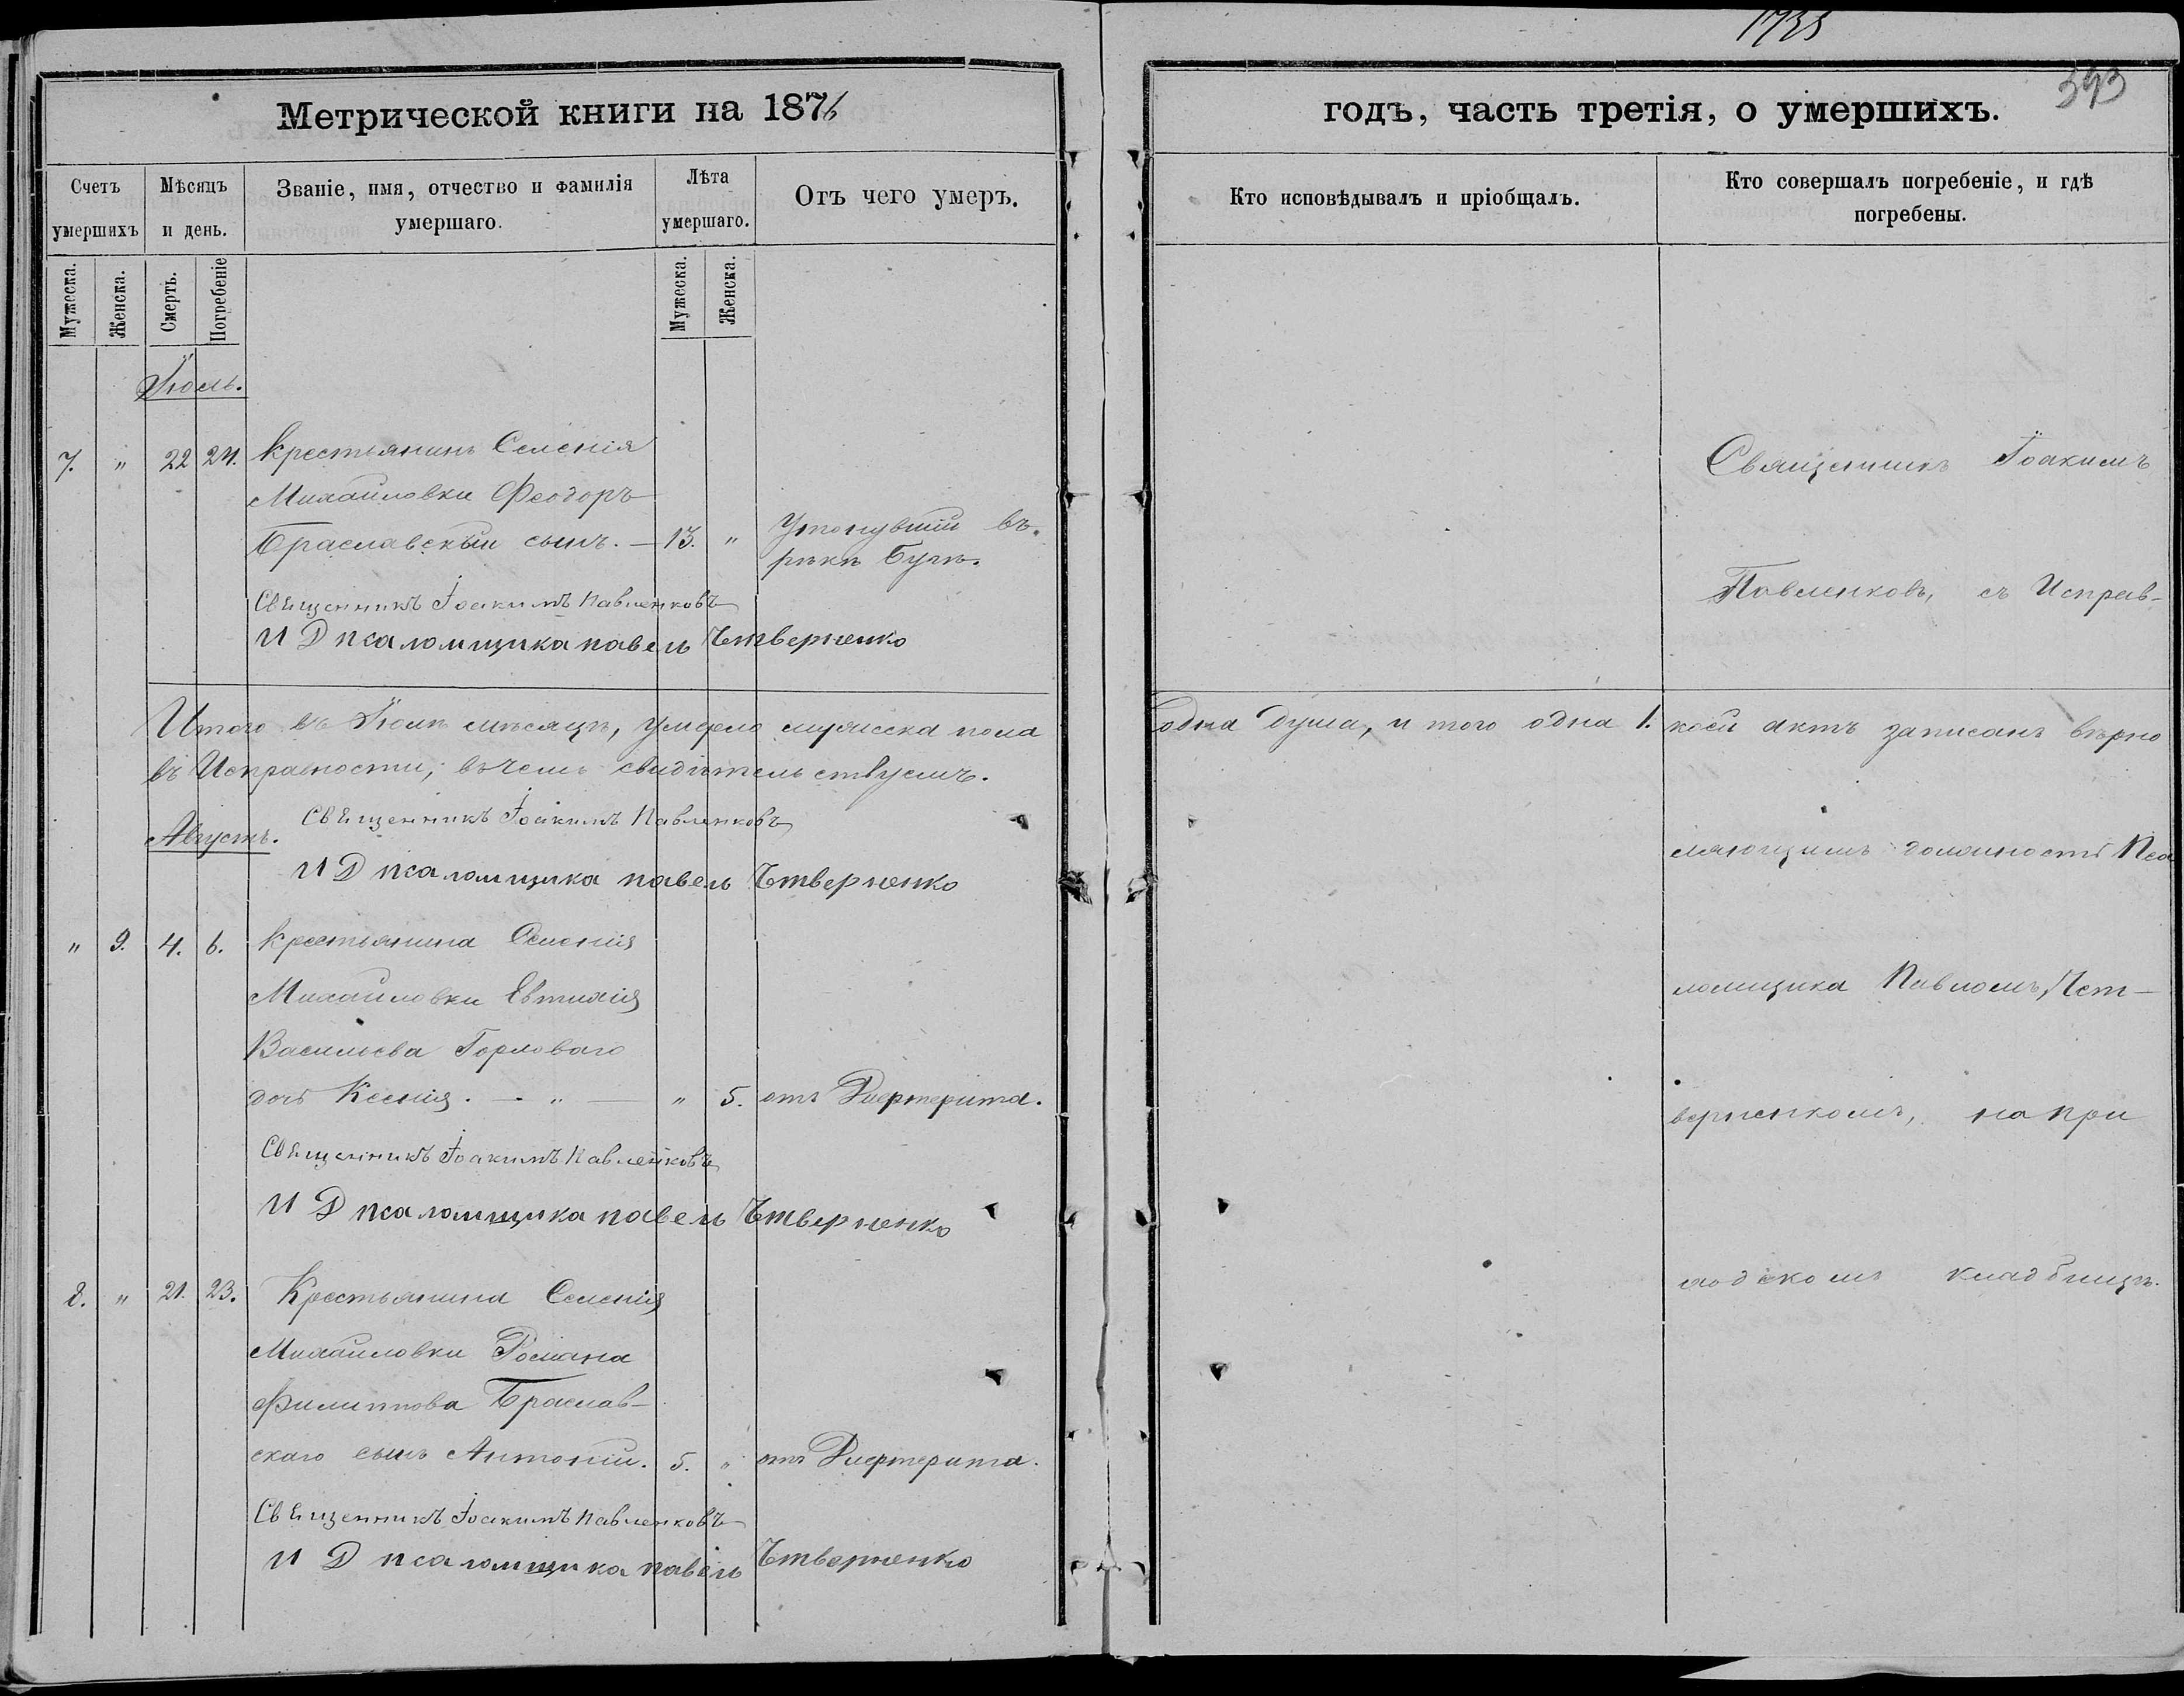 1735
393
Метрической книги на 1876
годъ, часть третія, о умершихъ.
Счетъ умершихъ
Мѣсяцъ и день.
Званіе, имя, отчество и фамилія умершаго.
Лѣта умершаго.
Отъ чего умеръ.
Кто исповѣдывалъ и пріобщалъ.
Кто совершалъ погребеніе, и гдѣ погребены.
Мужеска.
Женска.
Смерть.
Погребеніе
Мужеска.
Женска.
Іюль.
7. " 22 24. Крестьянинъ Селенія
Михайловки Феодоръ
Браславскій сынъ. — 13. " Утонувшій въ
рѣкѣ Бугъ.
Священникъ Іоакимъ Павленковъ
И Д псаломщика павелъ Четверненко
Итого въ Іюлѣ мѣсяцѣ, умерло мужеска пола
одна душа, и того одна 1. коей актъ записанъ вѣрно
въ Исправности, въ чемъ свидѣтельствуемъ.
Священникъ Іоакимъ Павленковъ
Августъ.
И Д псаломщика павелъ Четверненко
" 9. 4. 6. Крестьянина Селенія
Михайловки Евтихія
Васильева Горловаго
дочь Ксенія. — " — " 5. отъ Дифтерита.
Священникъ Іоакимъ Павленковъ
И Д псаломщика павелъ Четверненко
8. " 21. 23. Крестьянина Селенія
Михайловки Романа
Филиппова Браслав-
скаго сынъ Антоній. 5. " отъ Дифтерита.
Священникъ Іоакимъ Павленковъ
И Д псаломщика павелъ Четверненко
Священникъ Іоакимъ
Павленковъ, съ Исправ-
ляющимъ должность Пса
ломщика Павломъ, Чет-
верненкомъ, на при
ходскомъ кладбищѣ.